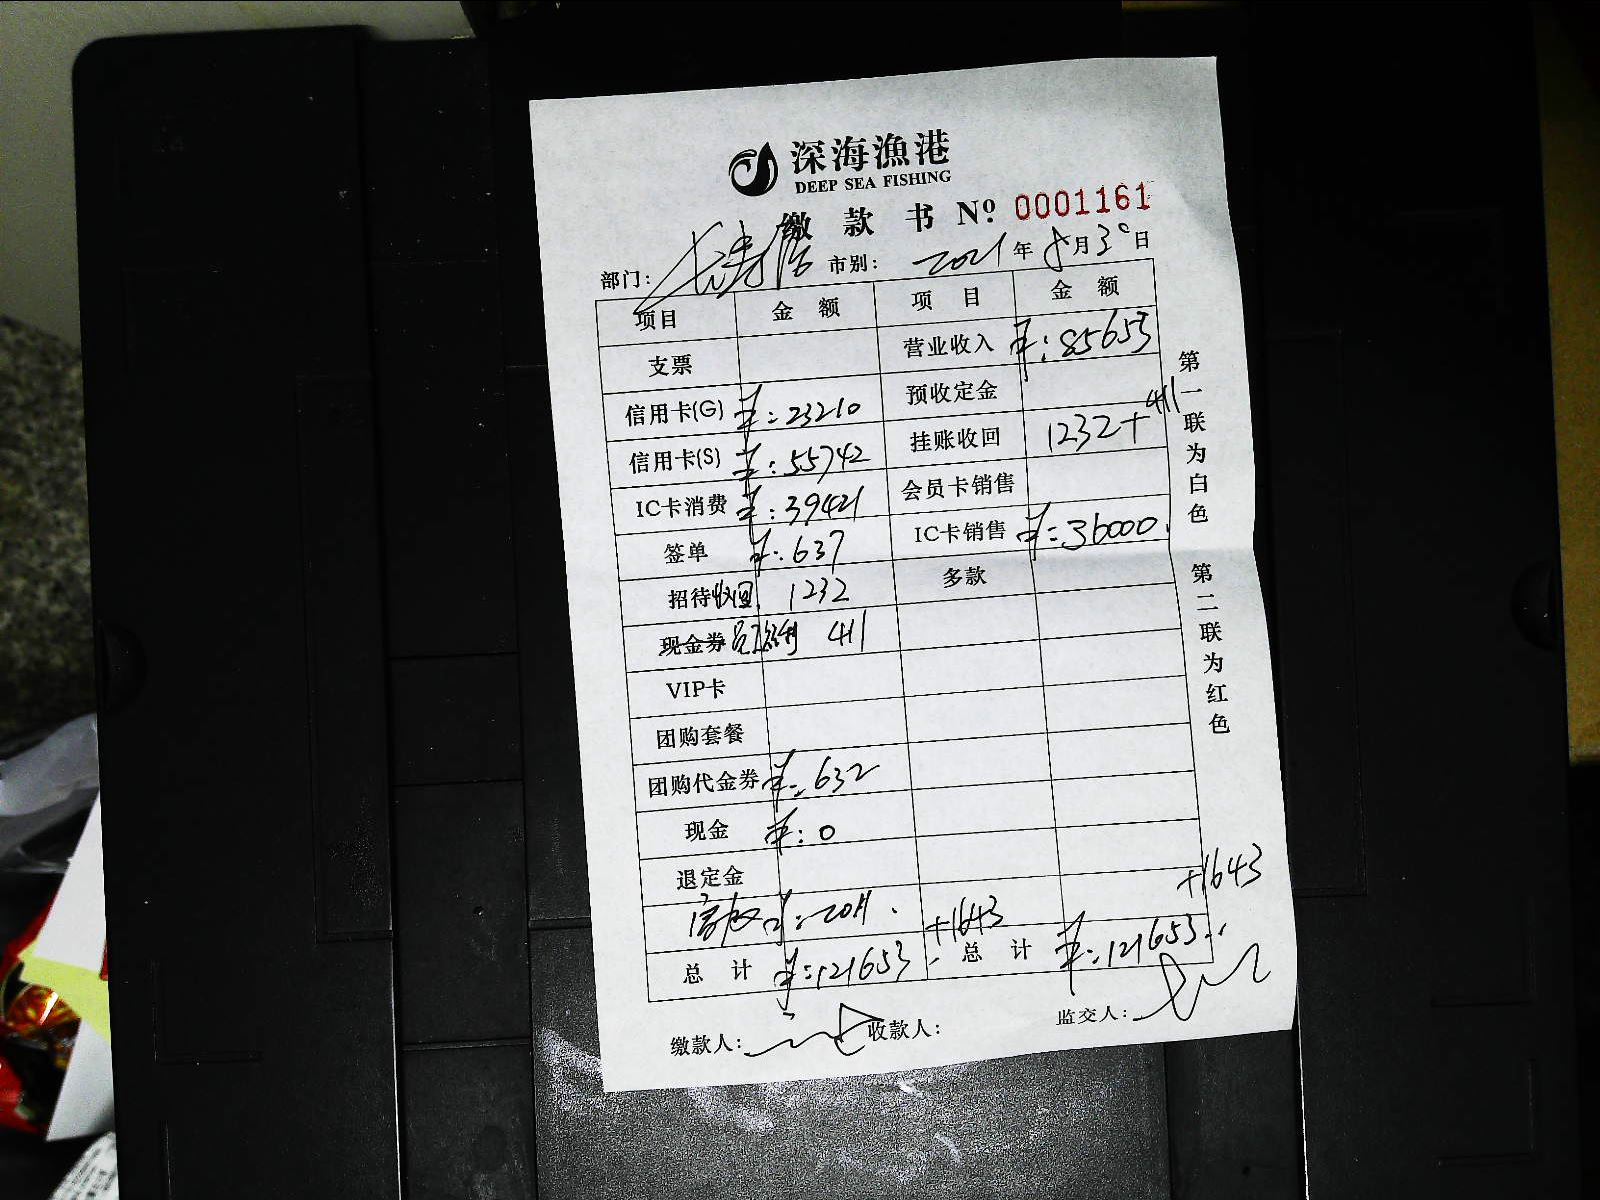 深海漁港
DEEP SEA FISHING
缴款书 № 0001161
部门： 市别： 2021年8月30日
项目 金额 项目 金额
支票 营业收入 ￥:85653
信用卡(G) ￥:23210 预收定金
信用卡(S) ￥:55742 挂账收回 1232+411
IC卡消费 ￥:39421 会员卡销售
签单 ￥:637 IC卡销售 ￥:36000.
招待收回 1232 多款
现金券 411
VIP卡
团购套餐
团购代金券 ￥:632
现金 ￥:0
退定金
￥:2011. +1643 +1643
总计 ￥:121653 总计 ￥:121653
缴款人： 收款人： 监交人：
第一联为白色
第二联为红色